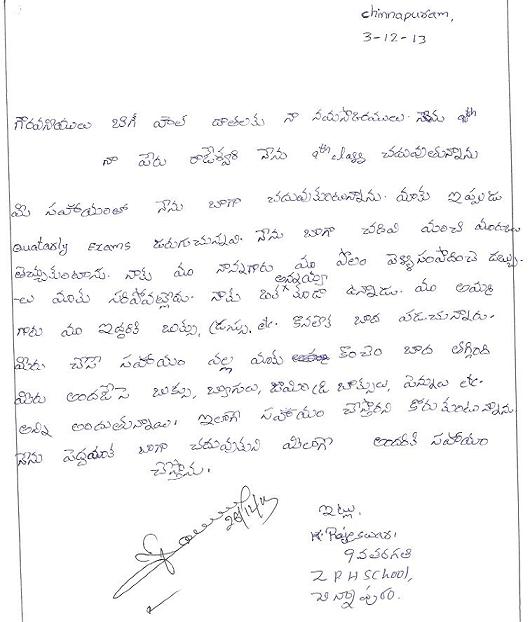 chinnapuram,
3-12-13
గౌరవనీయులు దాతలకు నా నమస్కారములు. 9th
నా పేరు రాజేశ్వరి నేను 9th class చదువుతున్నాను
మీ సహాయంతో నేను బాగా చదువుకుంటున్నాను. మాకు ఇప్పుడు
Quatarly Exams జరుగుచున్నవి. నేను బాగా చదివి మంచి మార్కులు
తెచ్చుకుంటాను. నాకు మా నాన్నగారు మా పొలం వెళ్ళి సంపాదించె డబ్బు
-లు మాకు సరిపోవట్లేదు. నాకు ఒక అన్నయ్య కూడా ఉన్నాడు. మా అమ్మ
గారు మా ఇద్దరికి బుక్సు, డ్రస్సు, etc. కొనలేక బాద పడుచున్నారు.
మీరు చేసే సహాయం వల్ల మాకు కొంచెం బాద తగ్గింది
మీరు అందజేసె బుక్సు, బ్యాగులు, జామిట్రి బాక్సులు, పెన్నులు etc.
అన్ని అందుతున్నాయి. ఇలాగే సహాయం చేస్తారని కోరుకుంటున్నాను
నేను పెద్దయ్యాక బాగా చదువుకుని మీలాగా అందరికి సహాయం
చేస్తాను.
ఇట్లు,
K. Rajeswari
9వతరగతి
Z P H SCHOOL,
చిన్నాపురం.